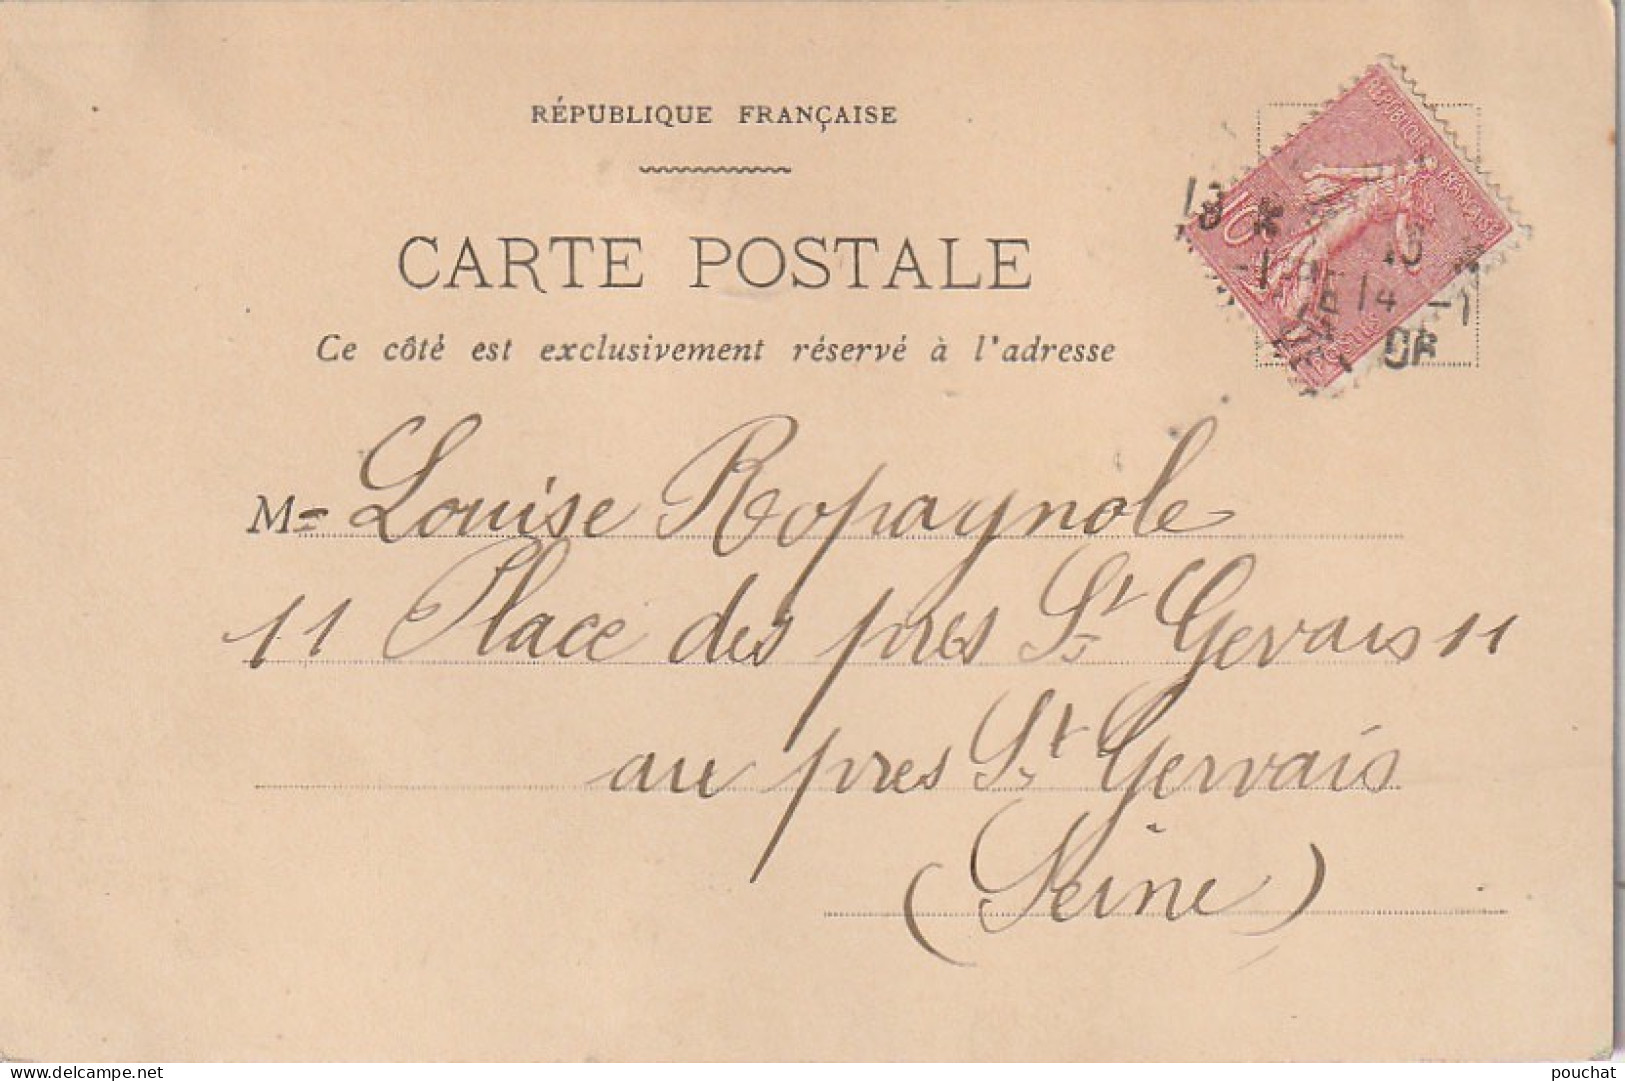 RÉPUBLIQUE FRANÇAISE
CARTE POSTALE
Ce côté est exclusivement réservé à l'adresse
REPUBLIQUE FRANÇAISE
10
POSTES
14 -1
M= Louise Ropagnole
11 Place des pres St Gervais 11
au pres St Gervais
(Seine)
pouchat